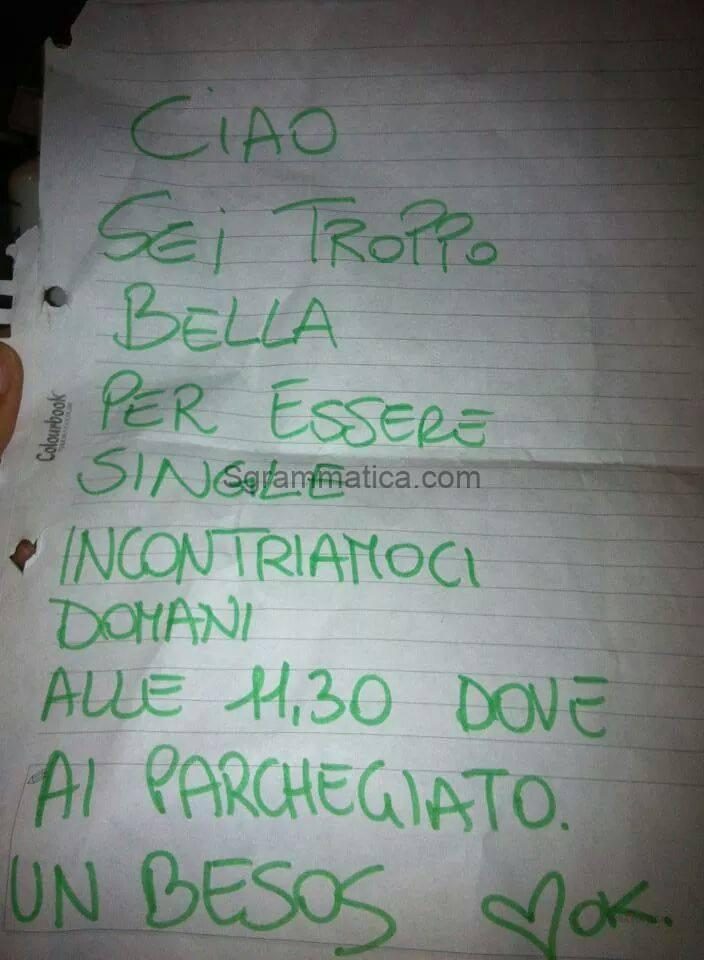 CiAO
SEi TROPPO
BELLA
PER ESSERE
SINGLE
Sgrammatica.com
INCONTRIAMOCI
DOMANI
ALLE 11,30 DOVE
AI PARCHEGIATO.
UN BESOS ♡OK.
Colourbook